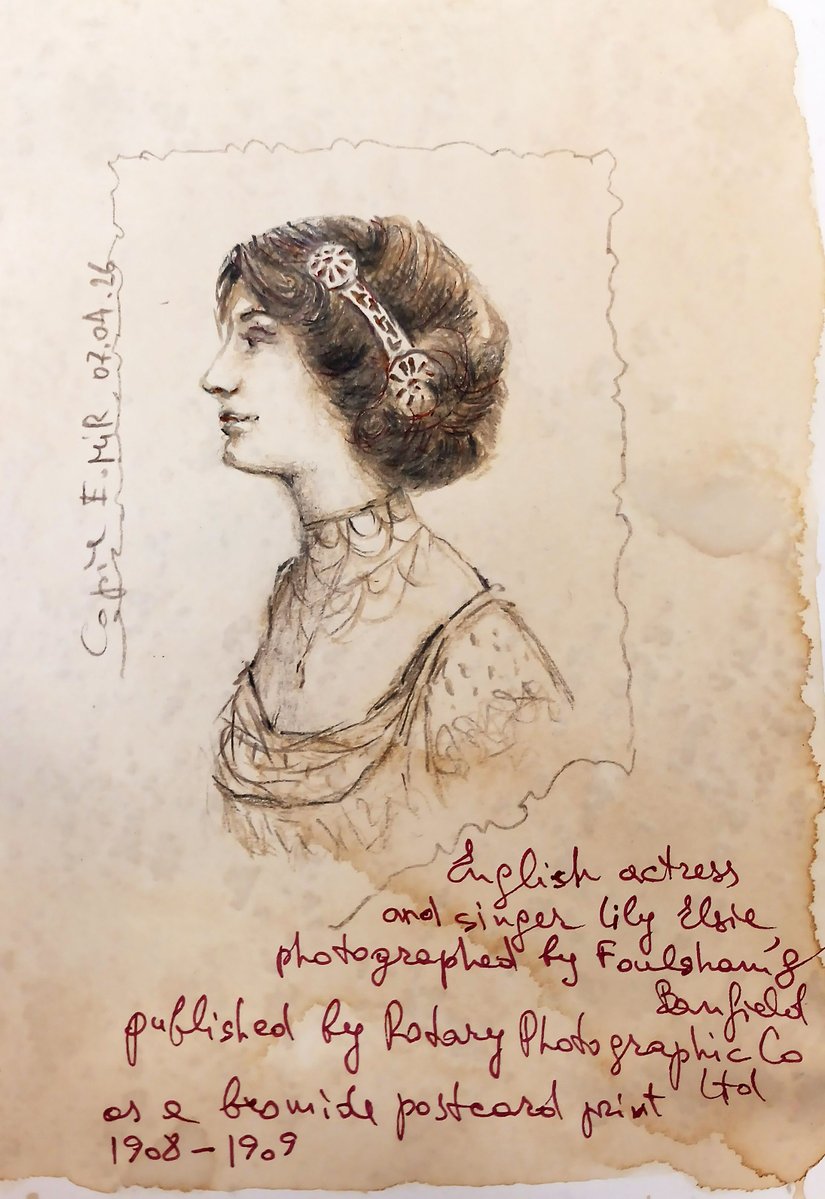 Copie E. MiR 07.04.26
English actress
and singer Lily Elsie,
photographed by Foulsham &
Banfield
published by Rotary Photographic Co
Ltd
as a bromide postcard print
1908-1909